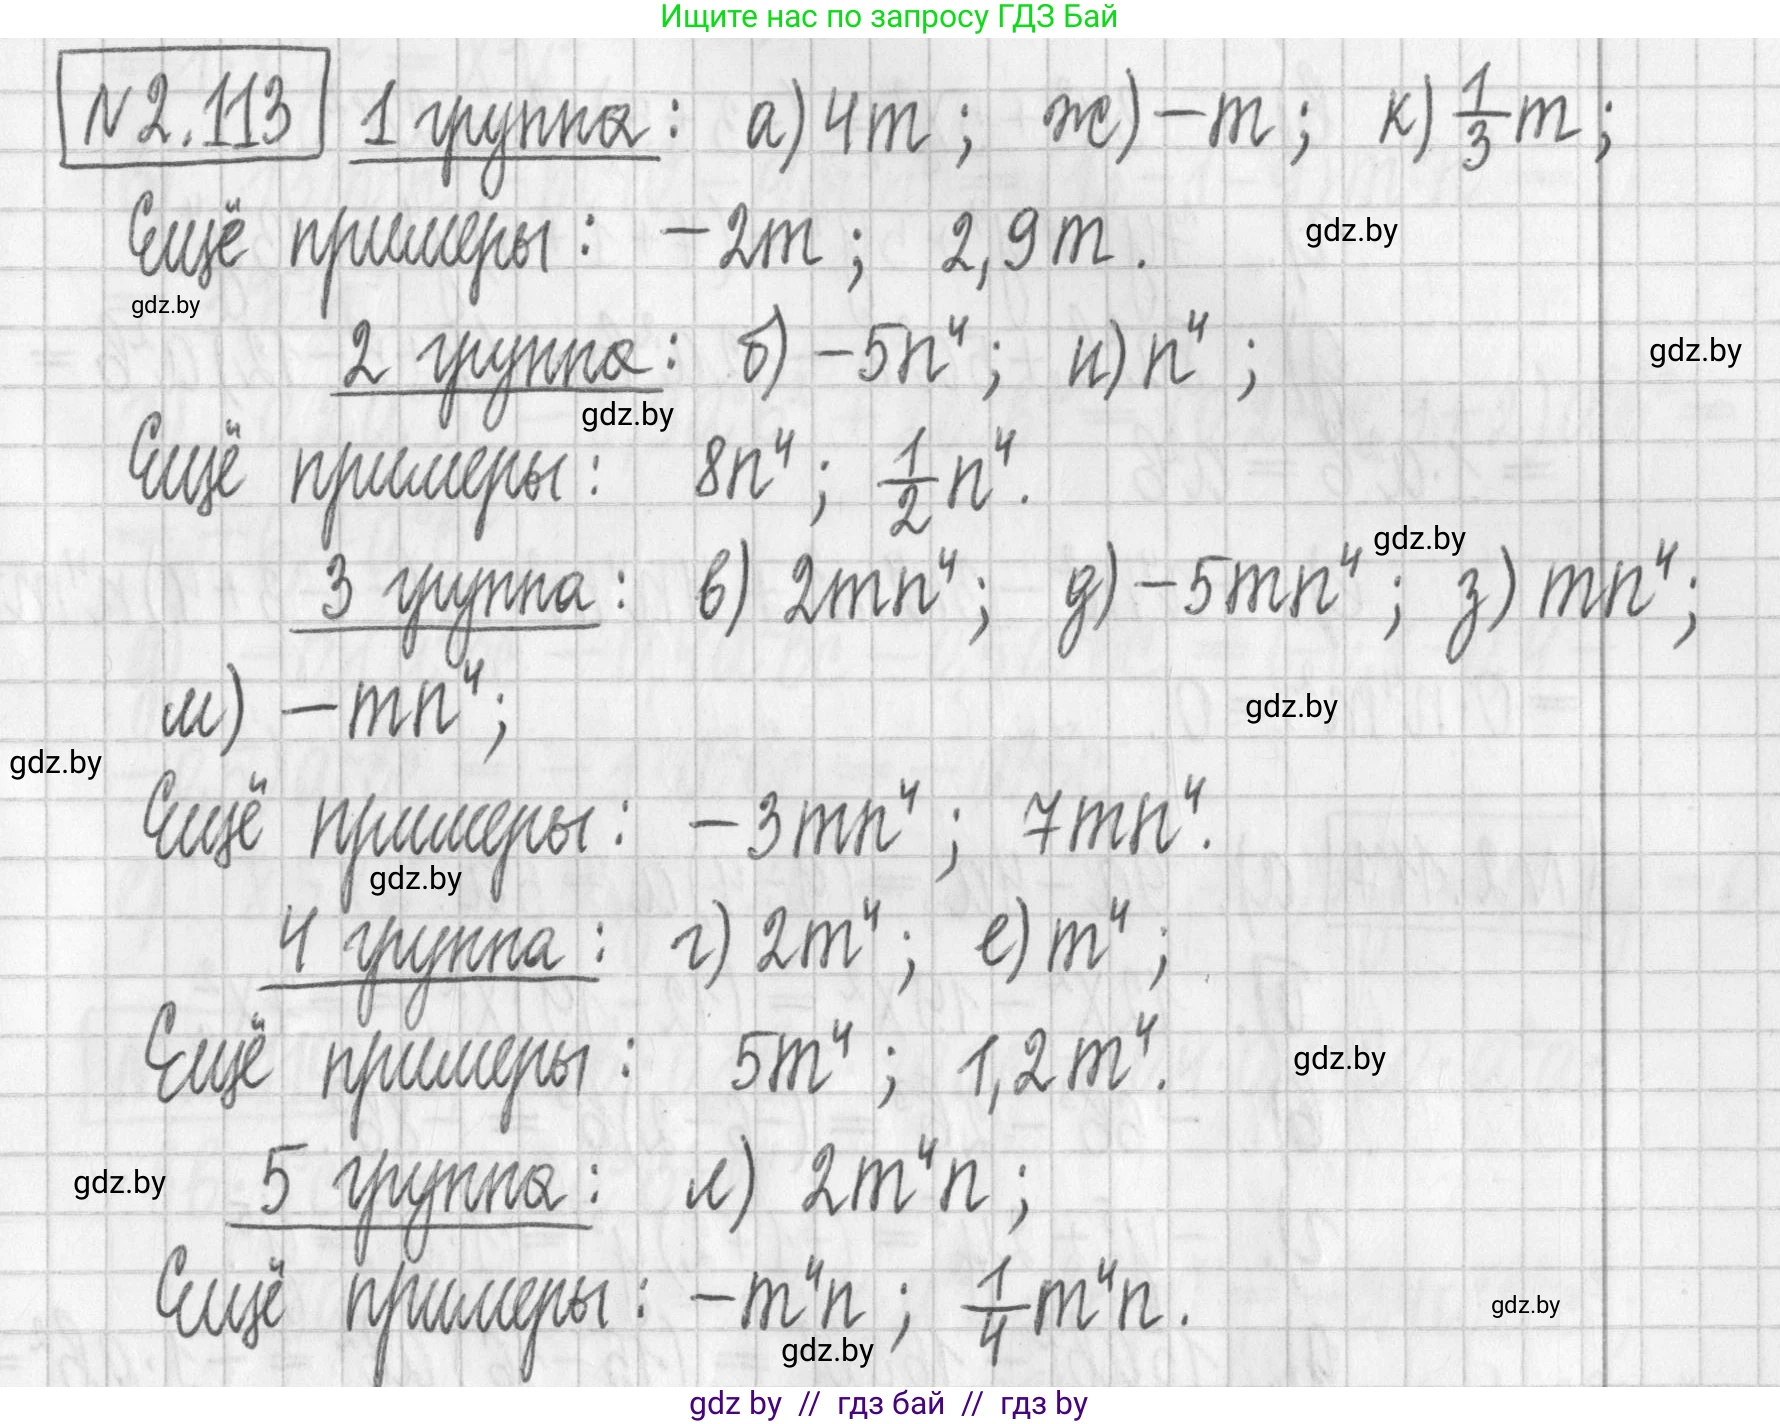 Ищите нас по запросу ГДЗ Бай
N2.113 1 группа: а) 4m; ж) -m; к) 1/3 m;
Ещё примеры: -2m; 2,9m.
gdz.by
gdz.by
2 группа: б) -5n⁴; и) n⁴;
gdz.by
gdz.by
Ещё примеры: 8n⁴; 1/2 n⁴.
gdz.by
3 группа: в) 2mn⁴; д) -5mn⁴; з) mn⁴;
м) -mn⁴;
gdz.by
gdz.by
Ещё примеры: -3mn⁴; 7mn⁴.
gdz.by
4 группа: г) 2m⁴; е) m⁴;
Ещё примеры: 5m⁴; 1,2m⁴.
gdz.by
5 группа: л) 2m⁴n;
gdz.by
Ещё примеры: -m⁴n; 1/4 m⁴n.
gdz.by
gdz.by
gdz by // гдз бай // гдз by